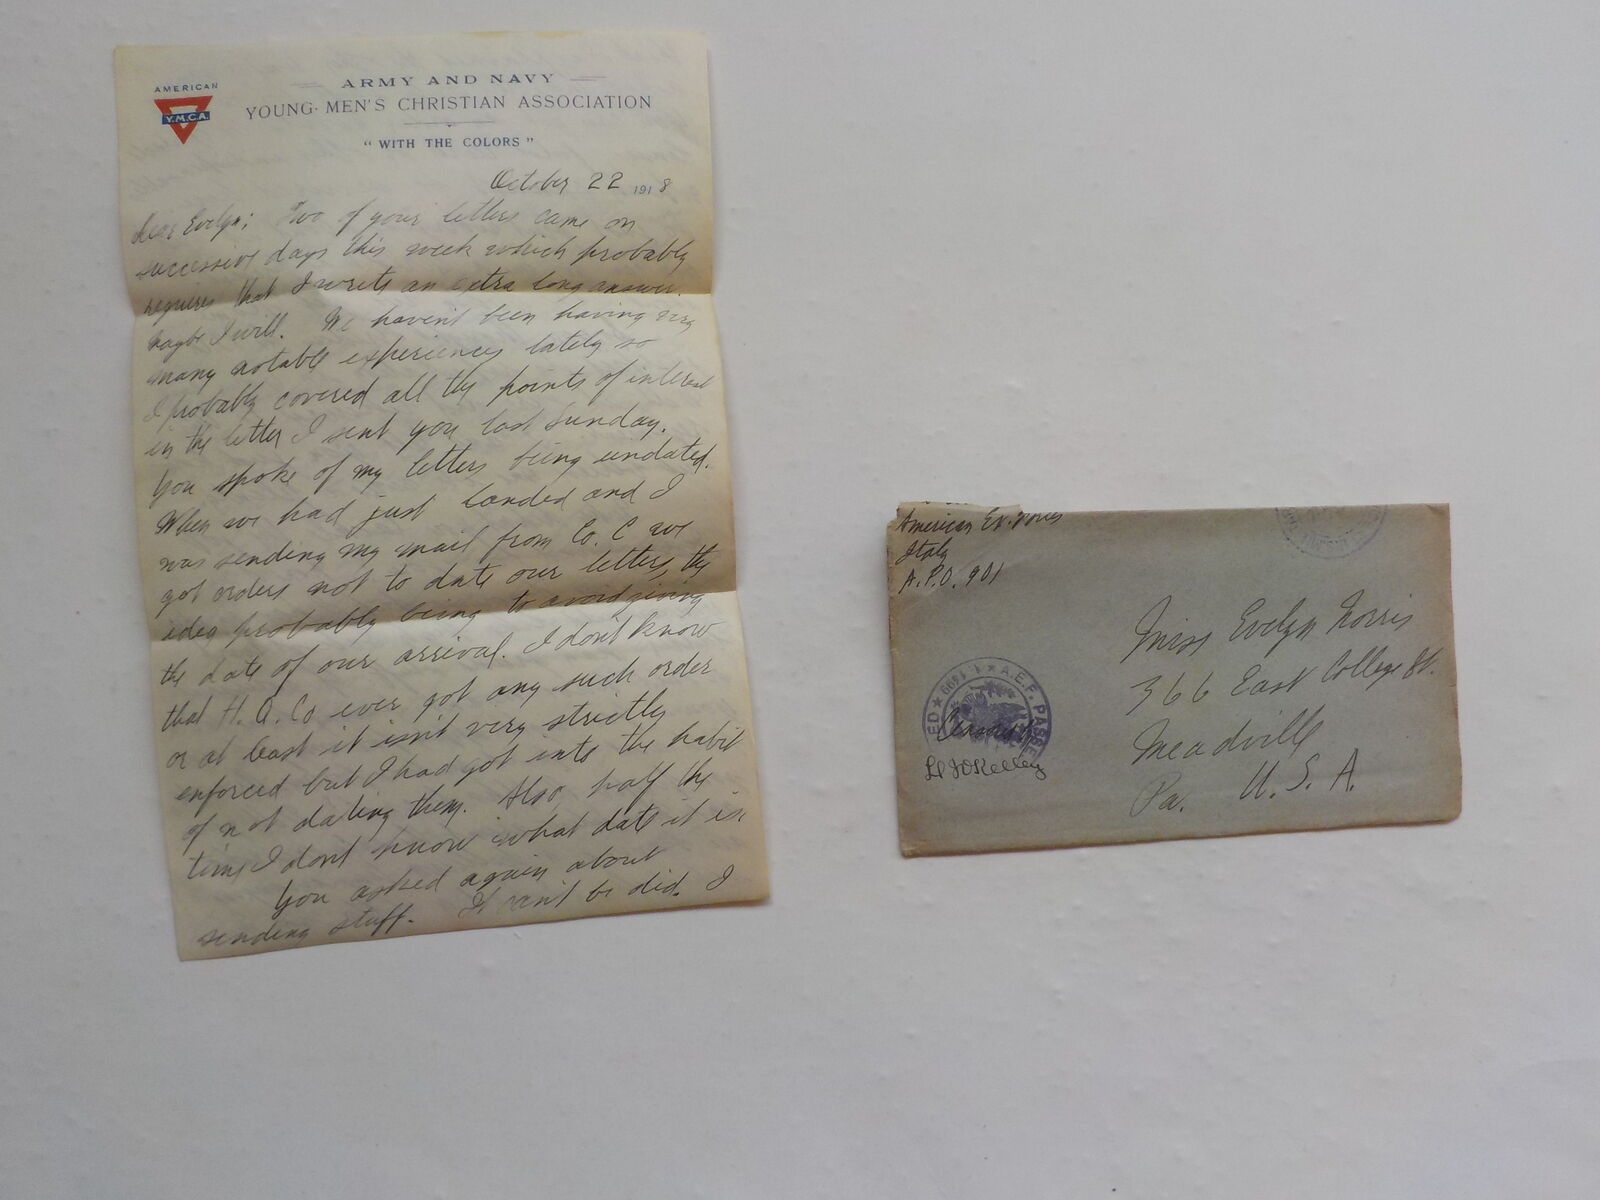 AMERICAN
Y.M.C.A.
ARMY AND NAVY
YOUNG MEN'S CHRISTIAN ASSOCIATION
"WITH THE COLORS"
October 22 1918
Dear Evelyn; Two of your letters came on
successive days this week which probably
requires that I write an extra long answer.
Maybe I will. We haven't been having very
many notable experiences lately so
I probably covered all the points of interest
in the letter I sent you last Sunday.
You spoke of my letters being undated.
When we had just landed and I
was sending my mail from Co. C we
got orders not to date our letters, the
idea probably being to avoid giving
the date of our arrival. I don't know
that H.Q. Co ever got any such order
or at least it isn't very strictly
enforced but I had got into the habit
of not dating them. Also, half the
time I don't know what date it is.
You asked again about
sending stuff. It can't be did. I
American Ex. Forces
Italy
A.P.O. 901
A.E.F. PASSED
Miss Evelyn Norris
366 East College St.
Meadville
Pa. U.S.A.